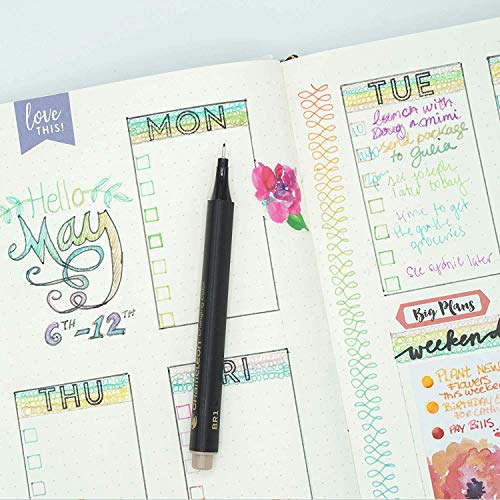 love
THIS!
MON
Hello
May
6TH-12TH
THU
RI
BR1
TUE
lunch with
Doug & mimi
send package
to Julia
see joseph
later today
time to get
the
groceries
see later
Big Plans
weekend
PLANT NEW
Flowers
This weeken
BIRTHDAY
FOR CATH
PAY BILLS